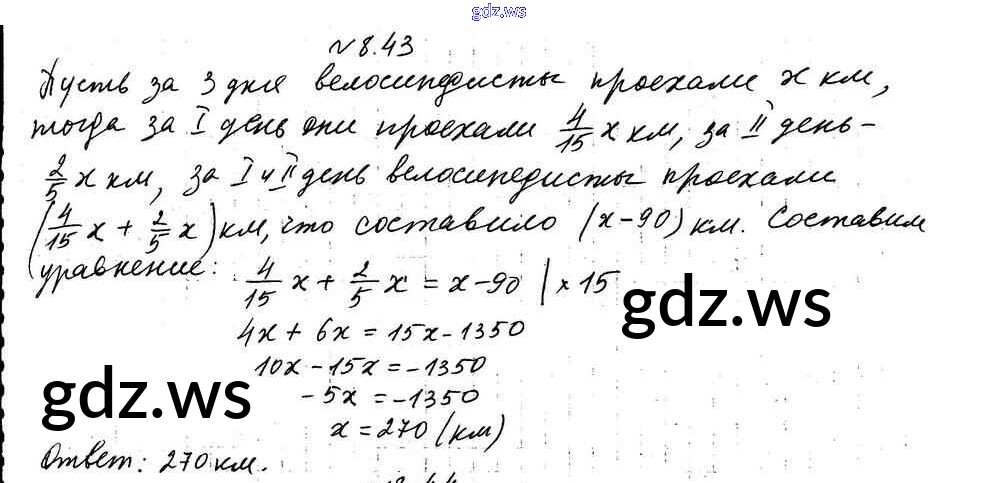 gdz.ws
№8.43
Пусть за 3 дня велосипедисты проехали x км,
тогда за I день они проехали 4/15 x км, за II день -
2/5 x км, за I и II день велосипедисты проехали
(4/15 x + 2/5 x) км, что составило (x-90) км. Составим
уравнение:
4/15 x + 2/5 x = x-90 | × 15
gdz.ws
4x + 6x = 15x - 1350
10x - 15x = -1350
gdz.ws
-5x = -1350
x = 270 (км)
Ответ: 270 км.